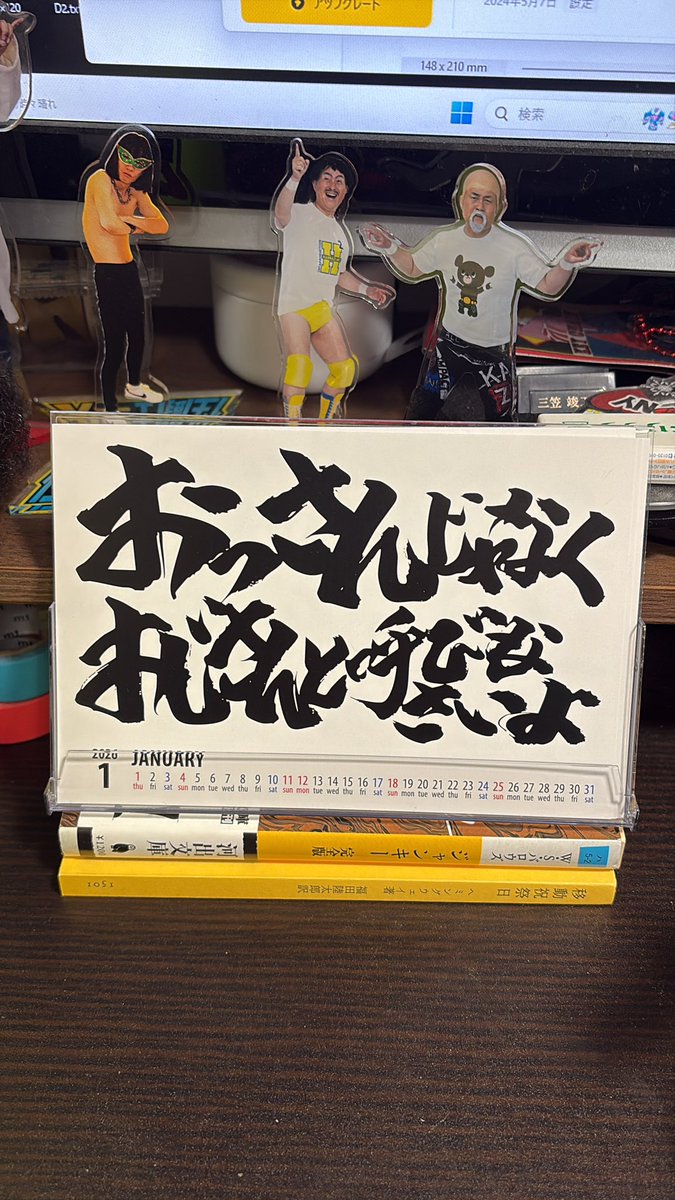 アップグレード
2024年5月7日 設定
148 x 210 mm
検索
H
三笠 竣
おっさんじゃなく
おじさんと呼びなさいよ
2026
1
JANUARY
1 2 3 4 5 6 7 8 9 10 11 12 13 14 15 16 17 18 19 20 21 22 23 24 25 26 27 28 29 30 31
thu fri sat sun mon tue wed thu fri sat sun mon tue wed thu fri sat sun mon tue wed thu fri sat sun mon tue wed thu fri sat
河出文庫
ジャンキー 完全版
W・S・バロウズ
移動祝祭日
ヘミングウェイ著
福田陸太郎訳
1051